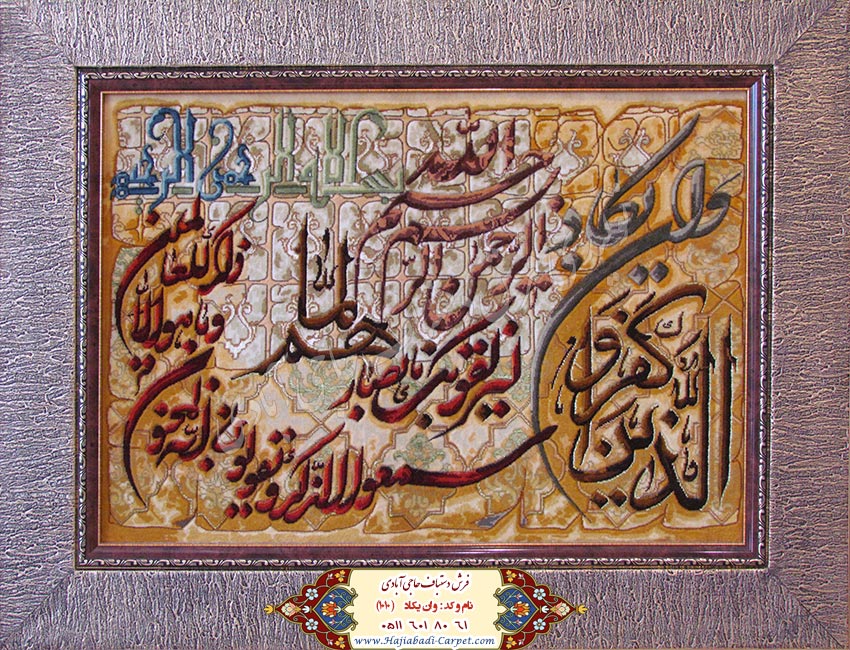 بسم الله الرحمن الرحیم
بسم الله الرحمن الرحیم
وان یکاد
الذین کفروا
لیزلقونک بابصارهم لما
سمعوا الذکر و یقولون انه لمجنون
وما هو الا
ذکر للعالمین
فرش دستباف حاجی آبادی
نام و کد : وان یکاد (۱۰۱۰)
۰۵۱۱ ۶۰۱ ۸۰ ۶۱
www.Hajiabadi-Carpet.com